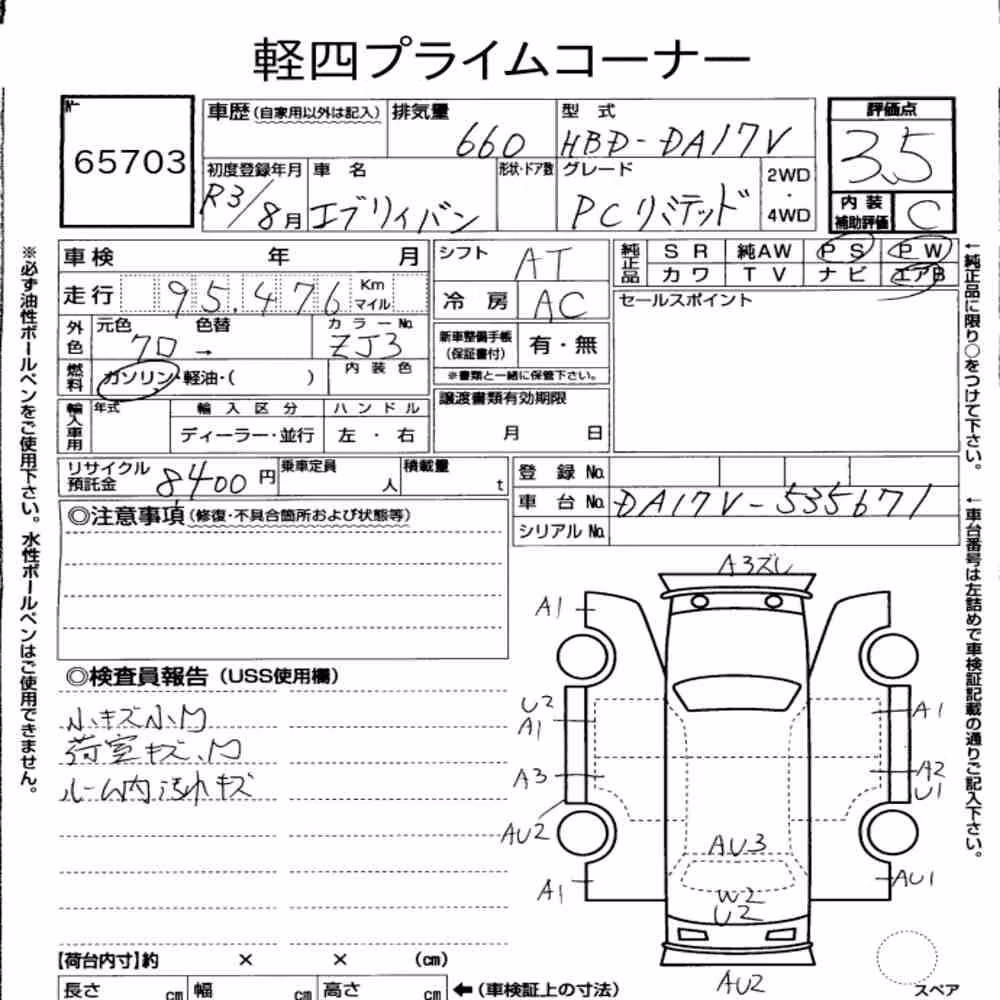 軽四プライムコーナー
№ 65703
車歴(自家用以外は記入) 排気量 660 型式 HBD-DA17V
評価点 3.5
初度登録年月 R3/8月 車名 エブリィバン 形状・ドア数 グレード PCリミテッド 2WD・4WD
内装補助評価 C
車検 年 月 シフト AT 純正品 SR 純AW PS PW
カワ TV ナビ エアB
走行 95,476 Km マイル 冷房 AC セールスポイント
外色 元色 色替 カラーNo.
クロ → ZJ3
新車整備手帳(保証書付) 有・無
※書類と一緒に保管下さい。
燃料 ガソリン・軽油・( ) 内装色
輸入車用 年式 輸入区分 ハンドル
ディーラー・並行 左・右
譲渡書類有効期限
月 日
リサイクル預託金 8400円 乗車定員 人 積載量 t
登録No.
車台No. DA17V-535671
シリアルNo.
◎注意事項(修復・不具合箇所および状態等)
◎検査員報告(USS使用欄)
小キズ小凹
荷室キズ、凹
ルーム内汚れキズ
A3ズレ
A1
U2
A1
A3
AU2
A1
A1
A2
U1
AU1
AU3
W2
U2
AU2
スペア
【荷台内寸】約 × × (cm)
長さ cm 幅 cm 高さ cm ←(車検証上の寸法)
※必ず油性ボールペンをご使用下さい。水性ボールペンはご使用できません。
←純正品に限り○をつけて下さい。
←車台番号は左詰めで車検証記載の通りご記入下さい。